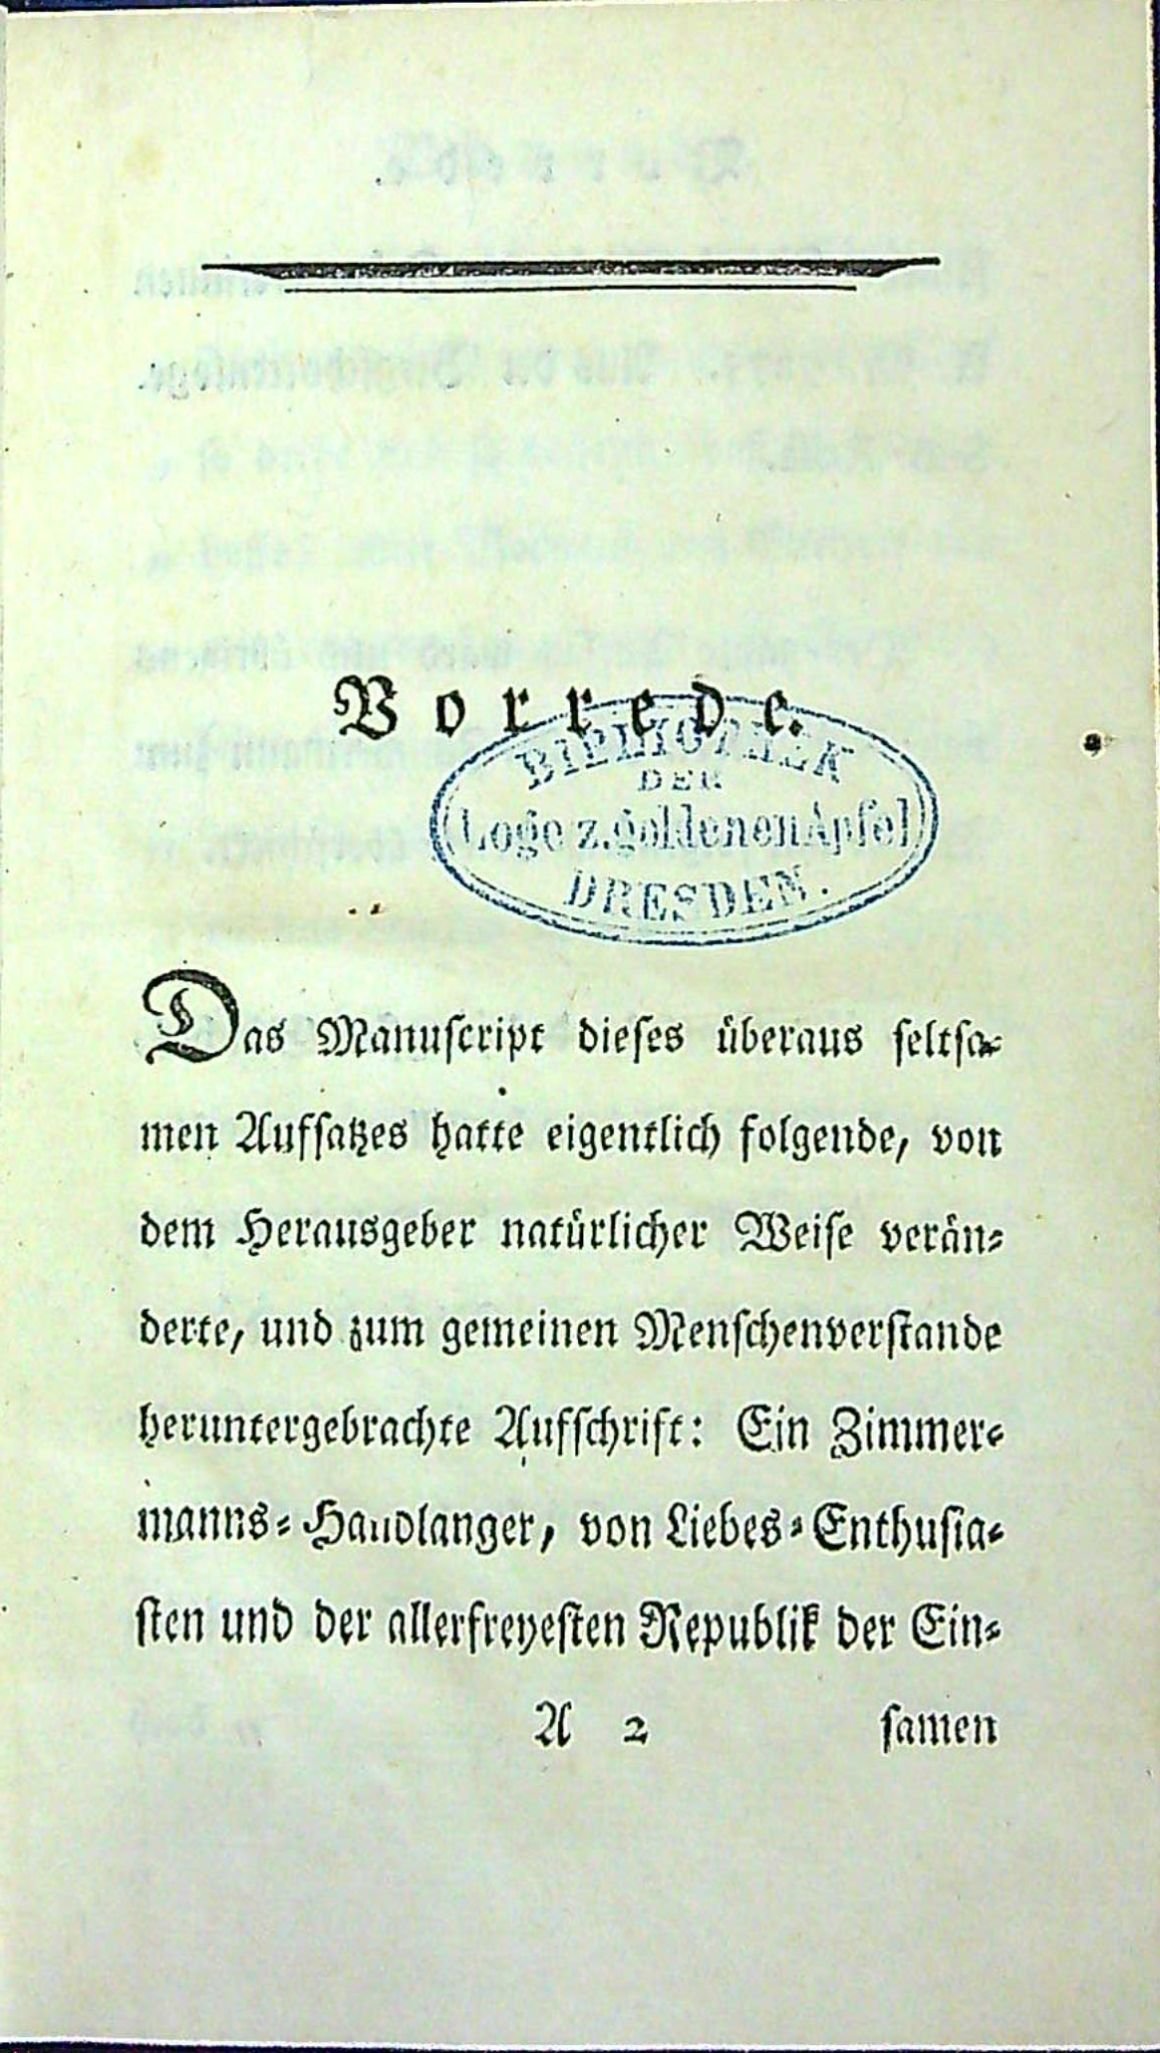 Vorrede.
BIBLIOTHEK
DER
Loge z. goldenen Apfel
DRESDEN.
Das Manuſcript dieſes überaus ſeltſa-
men Aufſatzes hatte eigentlich folgende, von
dem Herausgeber natürlicher Weiſe verän-
derte, und zum gemeinen Menſchenverſtande
heruntergebrachte Aufſchrift: Ein Zimmer-
manns-Handlanger, von Liebes-Enthuſia-
ſten und der allerfreyeſten Republik der Ein-
A 2 ſamen